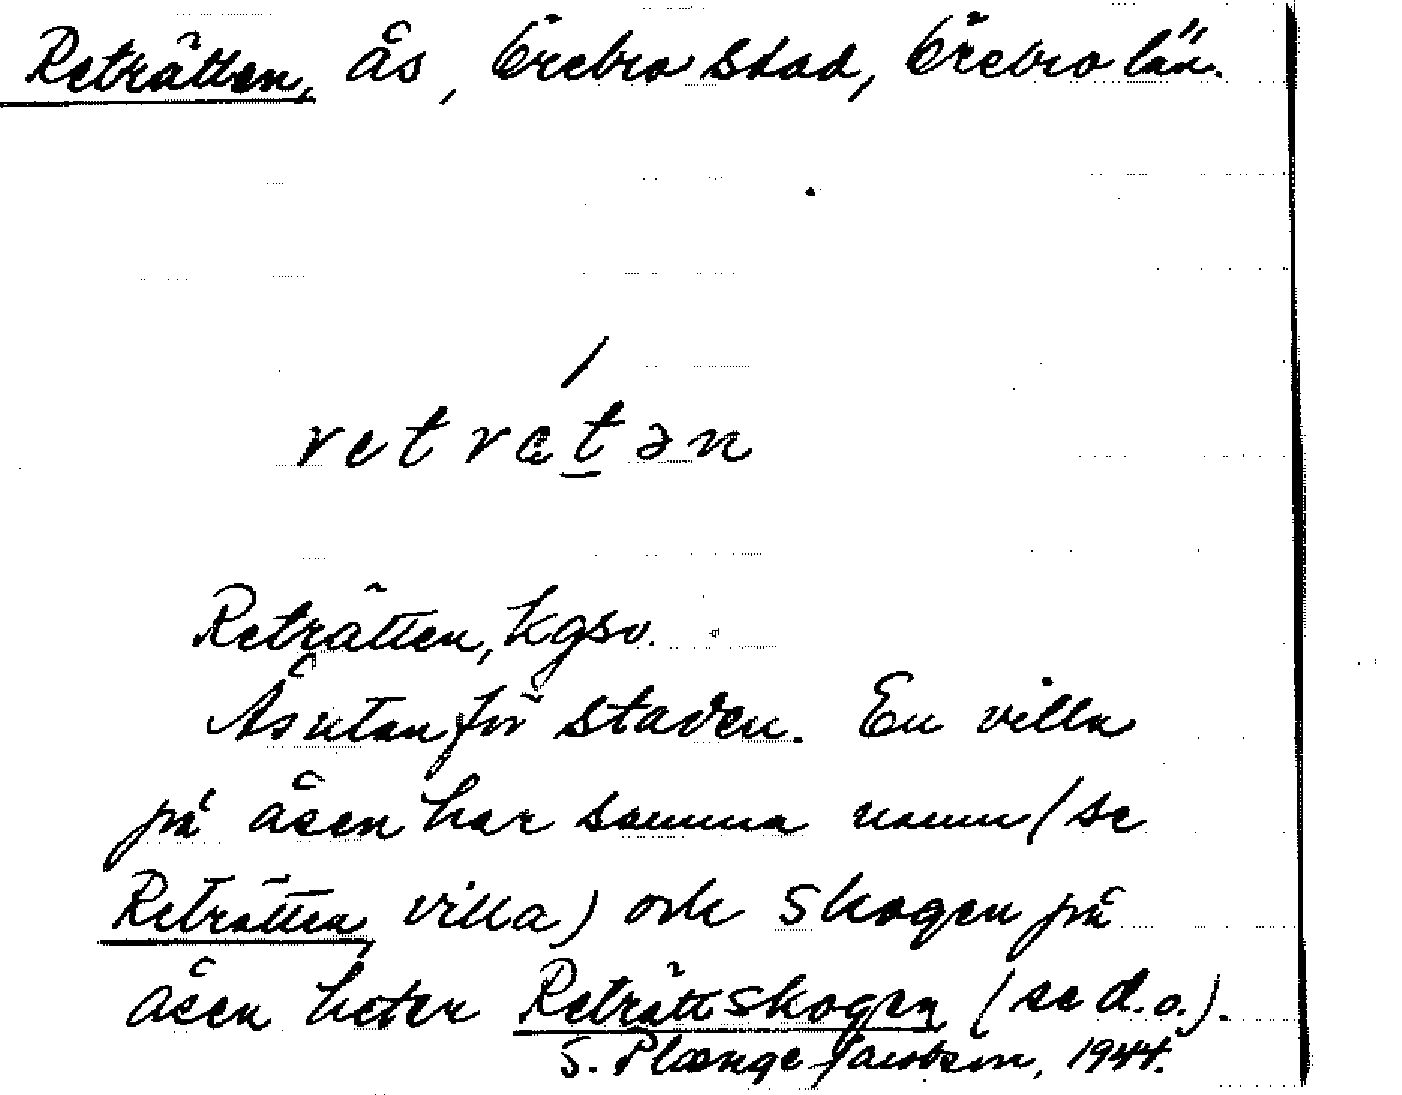 Reträtten, ås, Örebro stad, Örebro län.
retrætən
Reträtten, kgsv.
Ås utanför staden. En villa
på åsen har samma namn (se
Reträtten, villa) och skogen på
åsen heter Reträttskogen (se d.o.).
S. Plænge Jacobson, 1944.